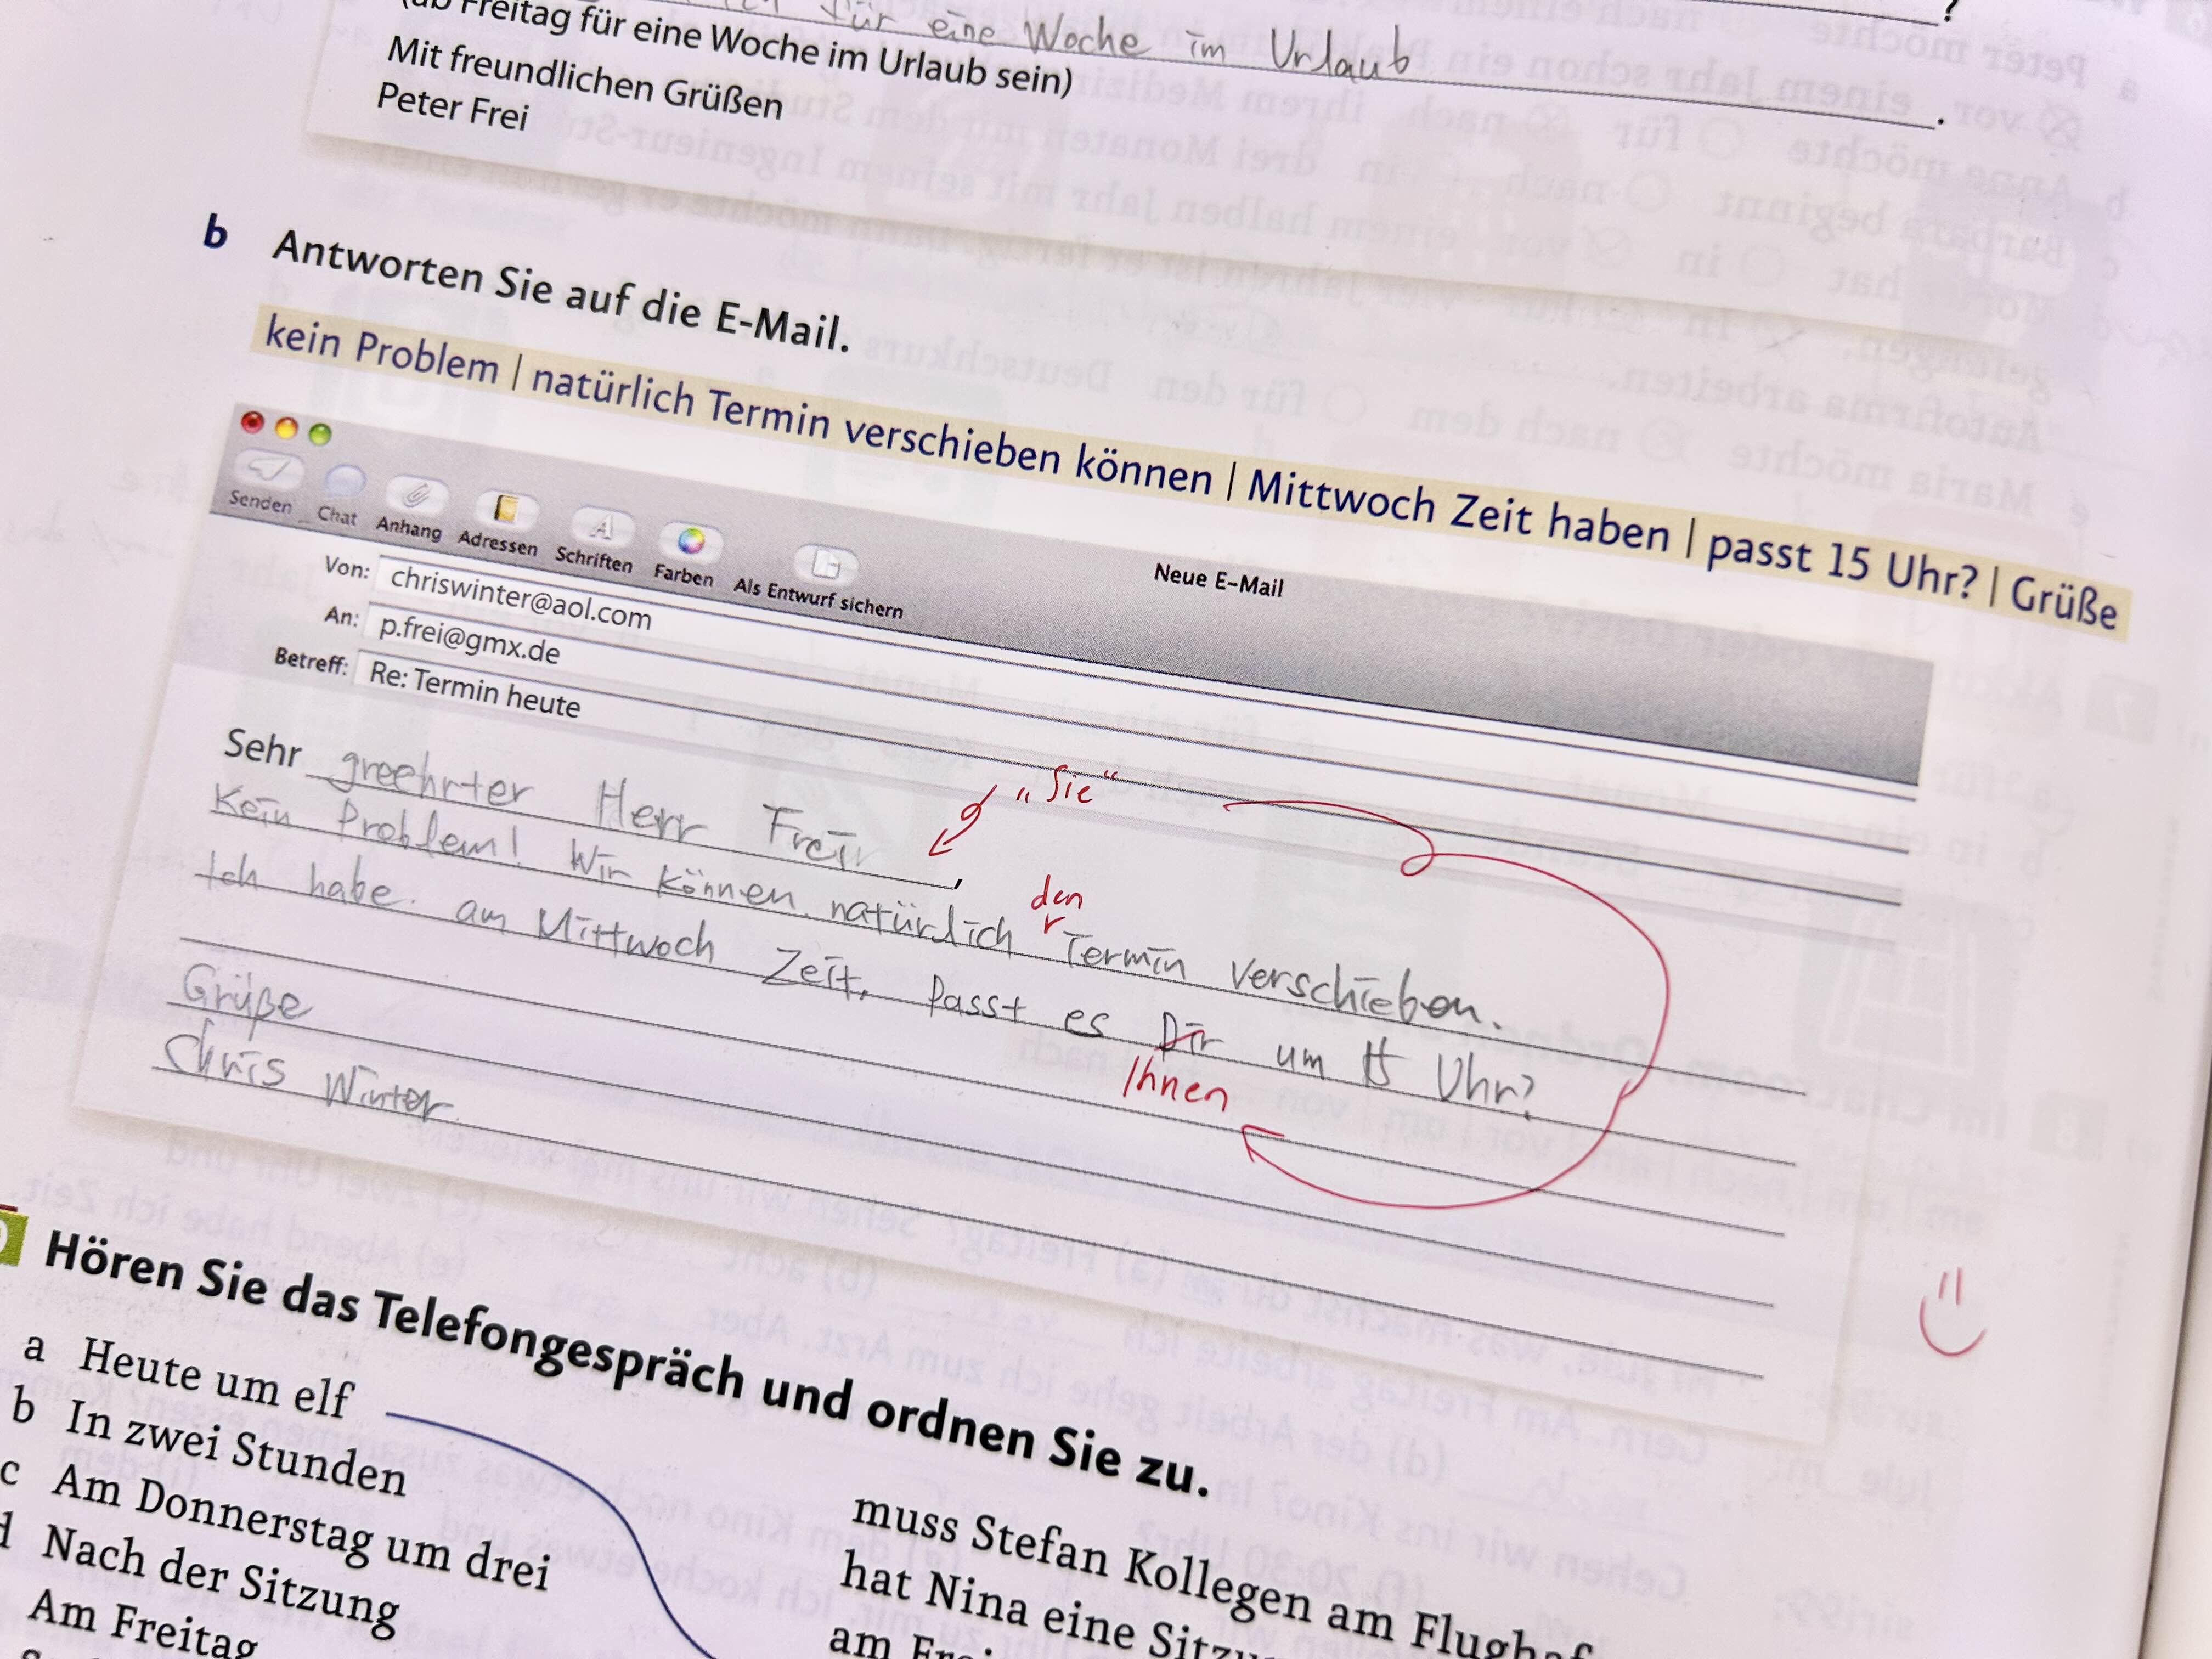 für eine Woche im Urlaub
?
Freitag für eine Woche im Urlaub sein)
.
Mit freundlichen Grüßen
Peter Frei
b Antworten Sie auf die E-Mail.
kein Problem | natürlich Termin verschieben können | Mittwoch Zeit haben | passt 15 Uhr? | Grüße
Neue E-Mail
Senden Chat Anhang Adressen Schriften Farben Als Entwurf sichern
Von: chriswinter@aol.com
An: p.frei@gmx.de
Betreff: Re: Termin heute
„Sie“
Sehr greehrter Herr Frei ,
den
Kein Problem! Wir können natürlich Termin verschieben.
Ich habe am Mittwoch Zeit. Passt es Dir um 15 Uhr?
Ihnen
Grüße
Chris Winter
Hören Sie das Telefongespräch und ordnen Sie zu.
a Heute um elf
b In zwei Stunden
c Am Donnerstag um drei
d Nach der Sitzung
Am Freitag
muss Stefan Kollegen am
hat Nina eine
am